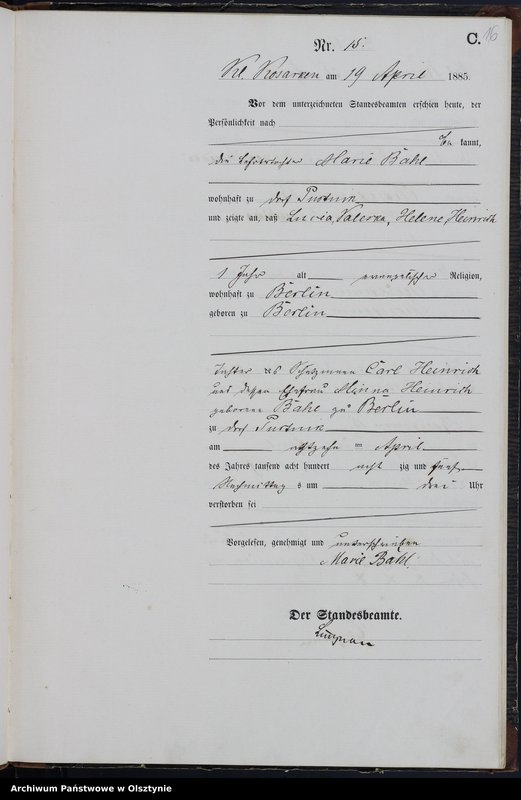 C. 16
Nr. 15.
Kl. Kosarken am 19 April 1885.
Vor dem unterzeichneten Standesbeamten erschien heute, der
Persönlichkeit nach
be kannt,
die Marie Bahl
wohnhaft zu Dorf
und zeigte an, daß Lucia, Valeska, Helene, Heinrich
1 Jahr alt evangelischer Religion,
wohnhaft zu Berlin
geboren zu Berlin
Tochter des Schutzmann Carl Heinrich
und dessen Ehefrau Minna Heinrich
geborene Bahl zu Berlin
zu Dorf
am achtzehn ten April
des Jahres tausend acht hundert acht zig und fünf
Nachmittag s um drei Uhr
verstorben sei
Vorgelesen, genehmigt und unterschrieben
Marie Bahl.
Der Standesbeamte.
Archiwum Państwowe w Olsztynie